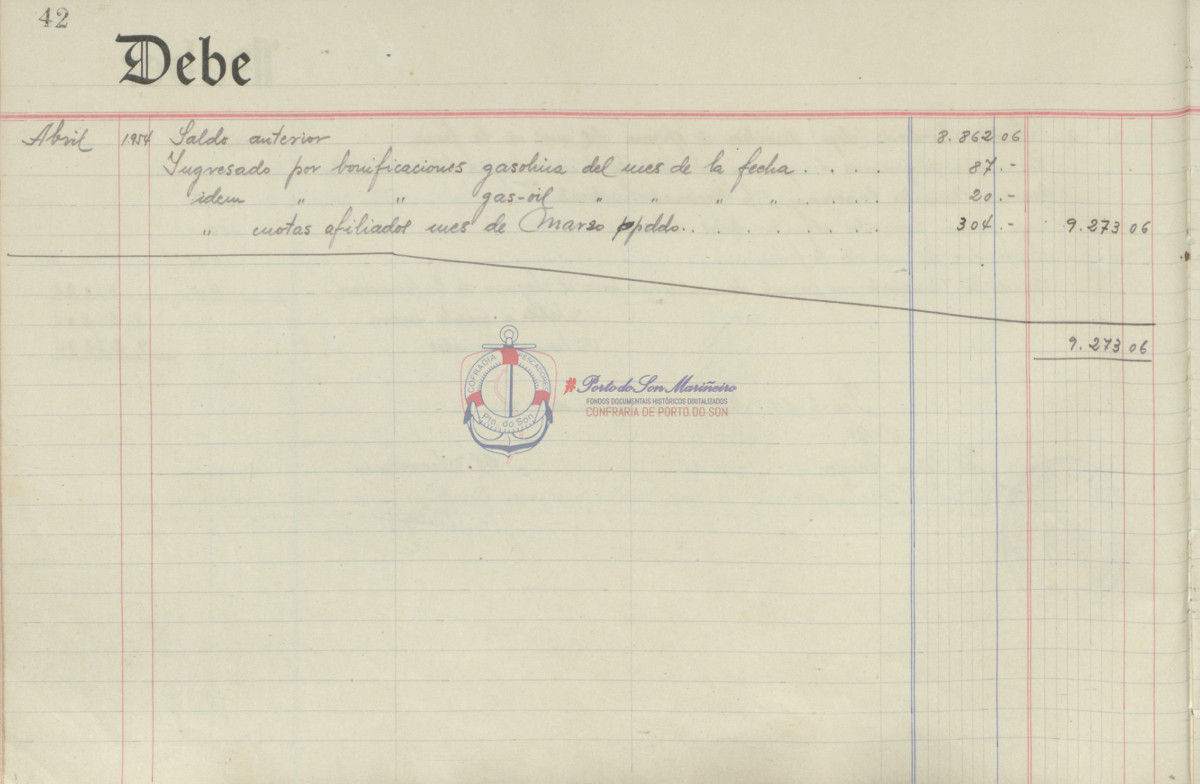 42
Debe
Abril 1.954 Saldo anterior 8.862 06
Ingresado por bonificaciones gasolina del mes de la fecha . . . . 87.-
idem " " gas-oil " " " " . . . . . 20.-
" cuotas afiliados mes de Marzo ppddo. . . . . . . . 304.- 9.273 06
9.273 06
COFRADIA PESCADORES
Pto. do Son
#Porto do Son Mariñeiro
FONDOS DOCUMENTAIS HISTÓRICOS DIXITALIZADOS
CONFRARÍA DE PORTO DO SON